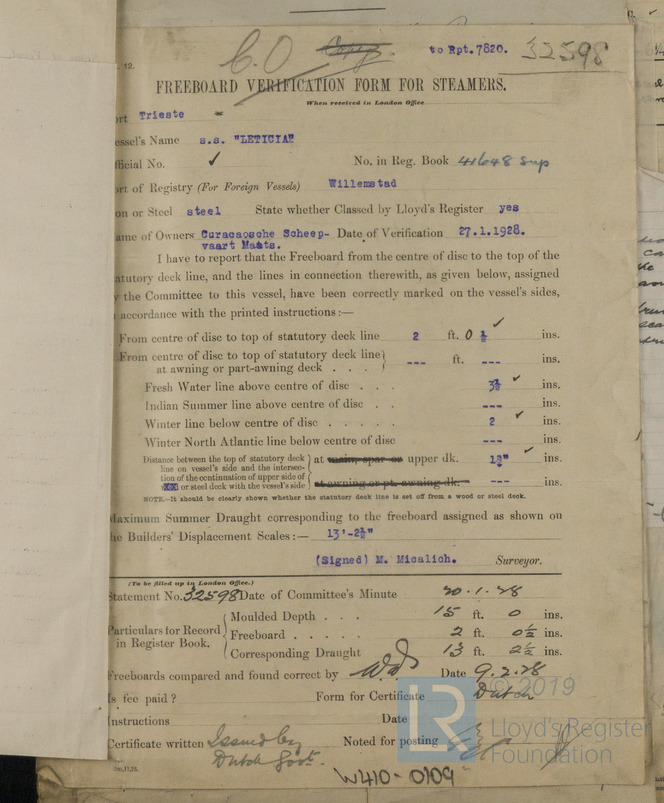 C.O Copy. to Rpt. 7820. 32598
12.
FREEBOARD VERIFICATION FORM FOR STEAMERS.
When received in London Office
ort Trieste
essel's Name s.s. "LETICIA"
fficial No. ✓ No. in Reg. Book 41648 sup
ort of Registry (For Foreign Vessels) Willemstad
on or Steel steel State whether Classed by Lloyd's Register yes
ame of Owners Curacaosche Scheep- Date of Verification 27.1.1928.
vaart Maats.
I have to report that the Freeboard from the centre of disc to the top of the
atutory deck line, and the lines in connection therewith, as given below, assigned
y the Committee to this vessel, have been correctly marked on the vessel's sides,
accordance with the printed instructions:—
From centre of disc to top of statutory deck line 2 ft. 0 ½ ✓ ins.
From centre of disc to top of statutory deck line
at awning or part-awning deck . . . --- ft. --- ins.
Fresh Water line above centre of disc . . . 3½ ✓ ins.
Indian Summer line above centre of disc . . --- ins.
Winter line below centre of disc . . . . . 2 ✓ ins.
Winter North Atlantic line below centre of disc --- ins.
Distance between the top of statutory deck
line on vessel's side and the intersec-
tion of the continuation of upper side of
or steel deck with the vessel's side
at main, spar or upper dk. 1½" ✓ ins.
at awning or pt. awning dk. --- ins.
NOTE.—It should be clearly shown whether the statutory deck line is set off from a wood or steel deck.
Maximum Summer Draught corresponding to the freeboard assigned as shown on
he Builders' Displacement Scales:— 13'-2½"
(Signed) M. Micalich. Surveyor.
(To be filled up in London Office.)
Statement No. 32598 Date of Committee's Minute 20.1.28
Particulars for Record
in Register Book.
Moulded Depth . . . 15 ft. 0 ins.
Freeboard . . . . . 2 ft. 0½ ins.
Corresponding Draught 13 ft. 2½ ins.
Freeboards compared and found correct by Date 9.2.28
Is fee paid? Form for Certificate Dutch
Instructions Date
Certificate written Issued by Noted for posting
Dutch Govt.
W410-0109
© 2019
LR
Lloyd's Register
Foundation